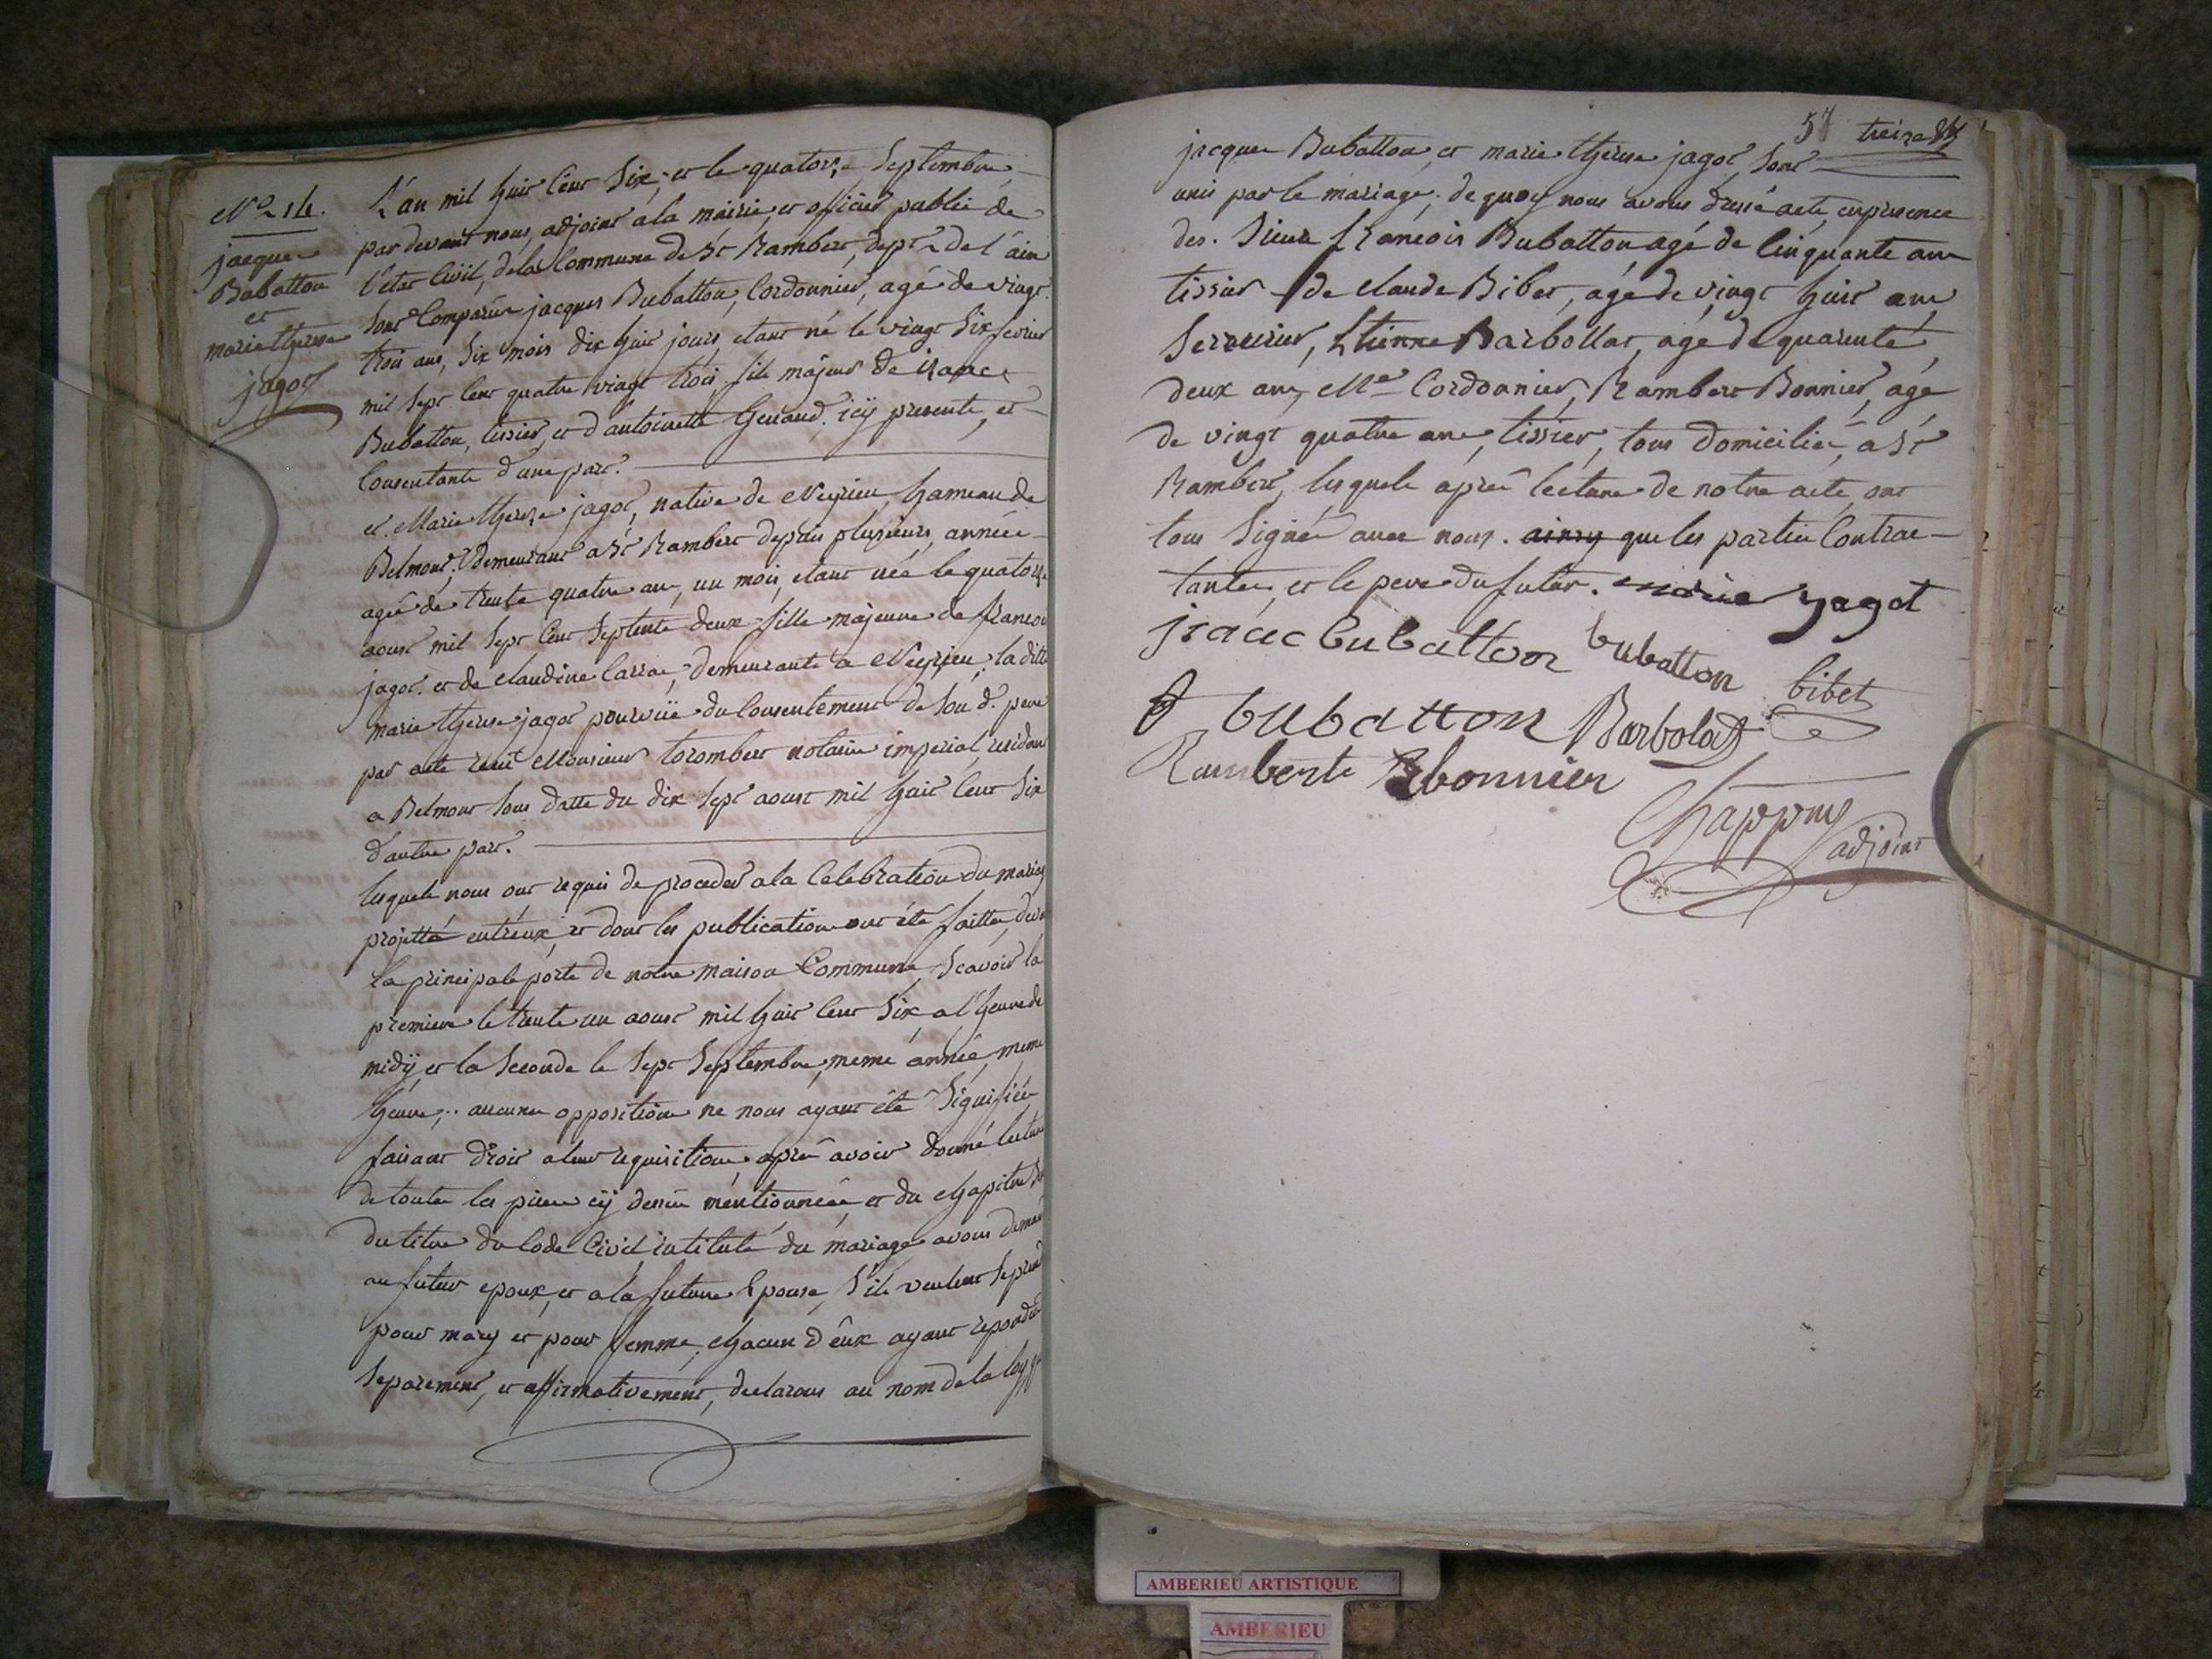 No 14.
jacques
Bubatton
et
marie therese
jagot
L'an mil huit Cent Six, et le quatorze Septembre,
par devant nous, adjoint a la mairie, et officier public de
l'etat Civil, de la Commune de St Rambert, dept de l'ain
Sont Comparus jacques Bubatton, Cordonnier, agé de vingt
trois ans, Six mois dix huit jours, etant né le vingt Six fevrier
mil Sept Cent quatre vingt trois, fils majeur de isaac
Bubatton, tissier, et d'antoinette Genaud, icÿ presents, et
Consentants d'une part.
et Marie therese jagot, native de Veyrieu, hameau de
Belmont, demeurant a St Rambert depuis plusieurs années
agée de trente quatre ans, un mois, etant née le quatorze
aoust mil Sept Cent Septente deux fille majeure de francois
jagot et de Claudine Carrae, demeurants a Veyrieu, la ditte
marie therese jagot pourvüe du Consentement de Son d. pere
par acte reçu Monsieur torombert notaire imperial, residant
a Belmont Sous datte du dix Sept aoust mil huit Cent Six
d'autre part.
lesquels nous ont requis de proceder a la Celebration du mariage
projetté entr'eux, et dont les publications ont été faittes devant
la principale porte de notre maison Commune, Scavoir la
premiere le trente un aoust mil huit Cent Six, a l'heure de
midÿ, et la Seconde le Sept Septembre, meme année, meme
heure; aucune opposition ne nous ayant été Signifiée
faisant droit a leur requisition, après avoir donné lecture
de toutes les pieces cÿ dessus mentionnées, et du Chapitre
du titre du Code Civil intitulé du mariage avons demandé
au futur epoux, et a la future Epouse, S'ils veulent Se prendre
pour mary et pour femme, chacun d'eux ayant repondu
Separement, et affirmativement, declarons au nom de la loy que
57 treize
jacques Bubatton, et marie therese jagot, Sont
unis par le mariage; de quoy nous avons dressé acte, en presence
des. Sieurs francois Bubatton, agé de Cinquante ans
tissier de Claude Bibet, agé de vingt huit ans
Serrurier, Etienne Barbollat, agé de quarente
deux ans, Md Cordonnier, Rambert Bonnier, agé
de vingt quatre ans, tissier, tous domiciliés, a St
Rambert, lesquels après lecture de notre acte, ont
tous Signés avec nous. ainsy que les parties Contrac-
tantes, et le pere du futur. marie jagot
jsaac bubatton bubatton bibet
f bubatton Barbolat
Rambert bonnier
Chappuy
adjoint
AMBERIEU ARTISTIQUE
AMBERIEU